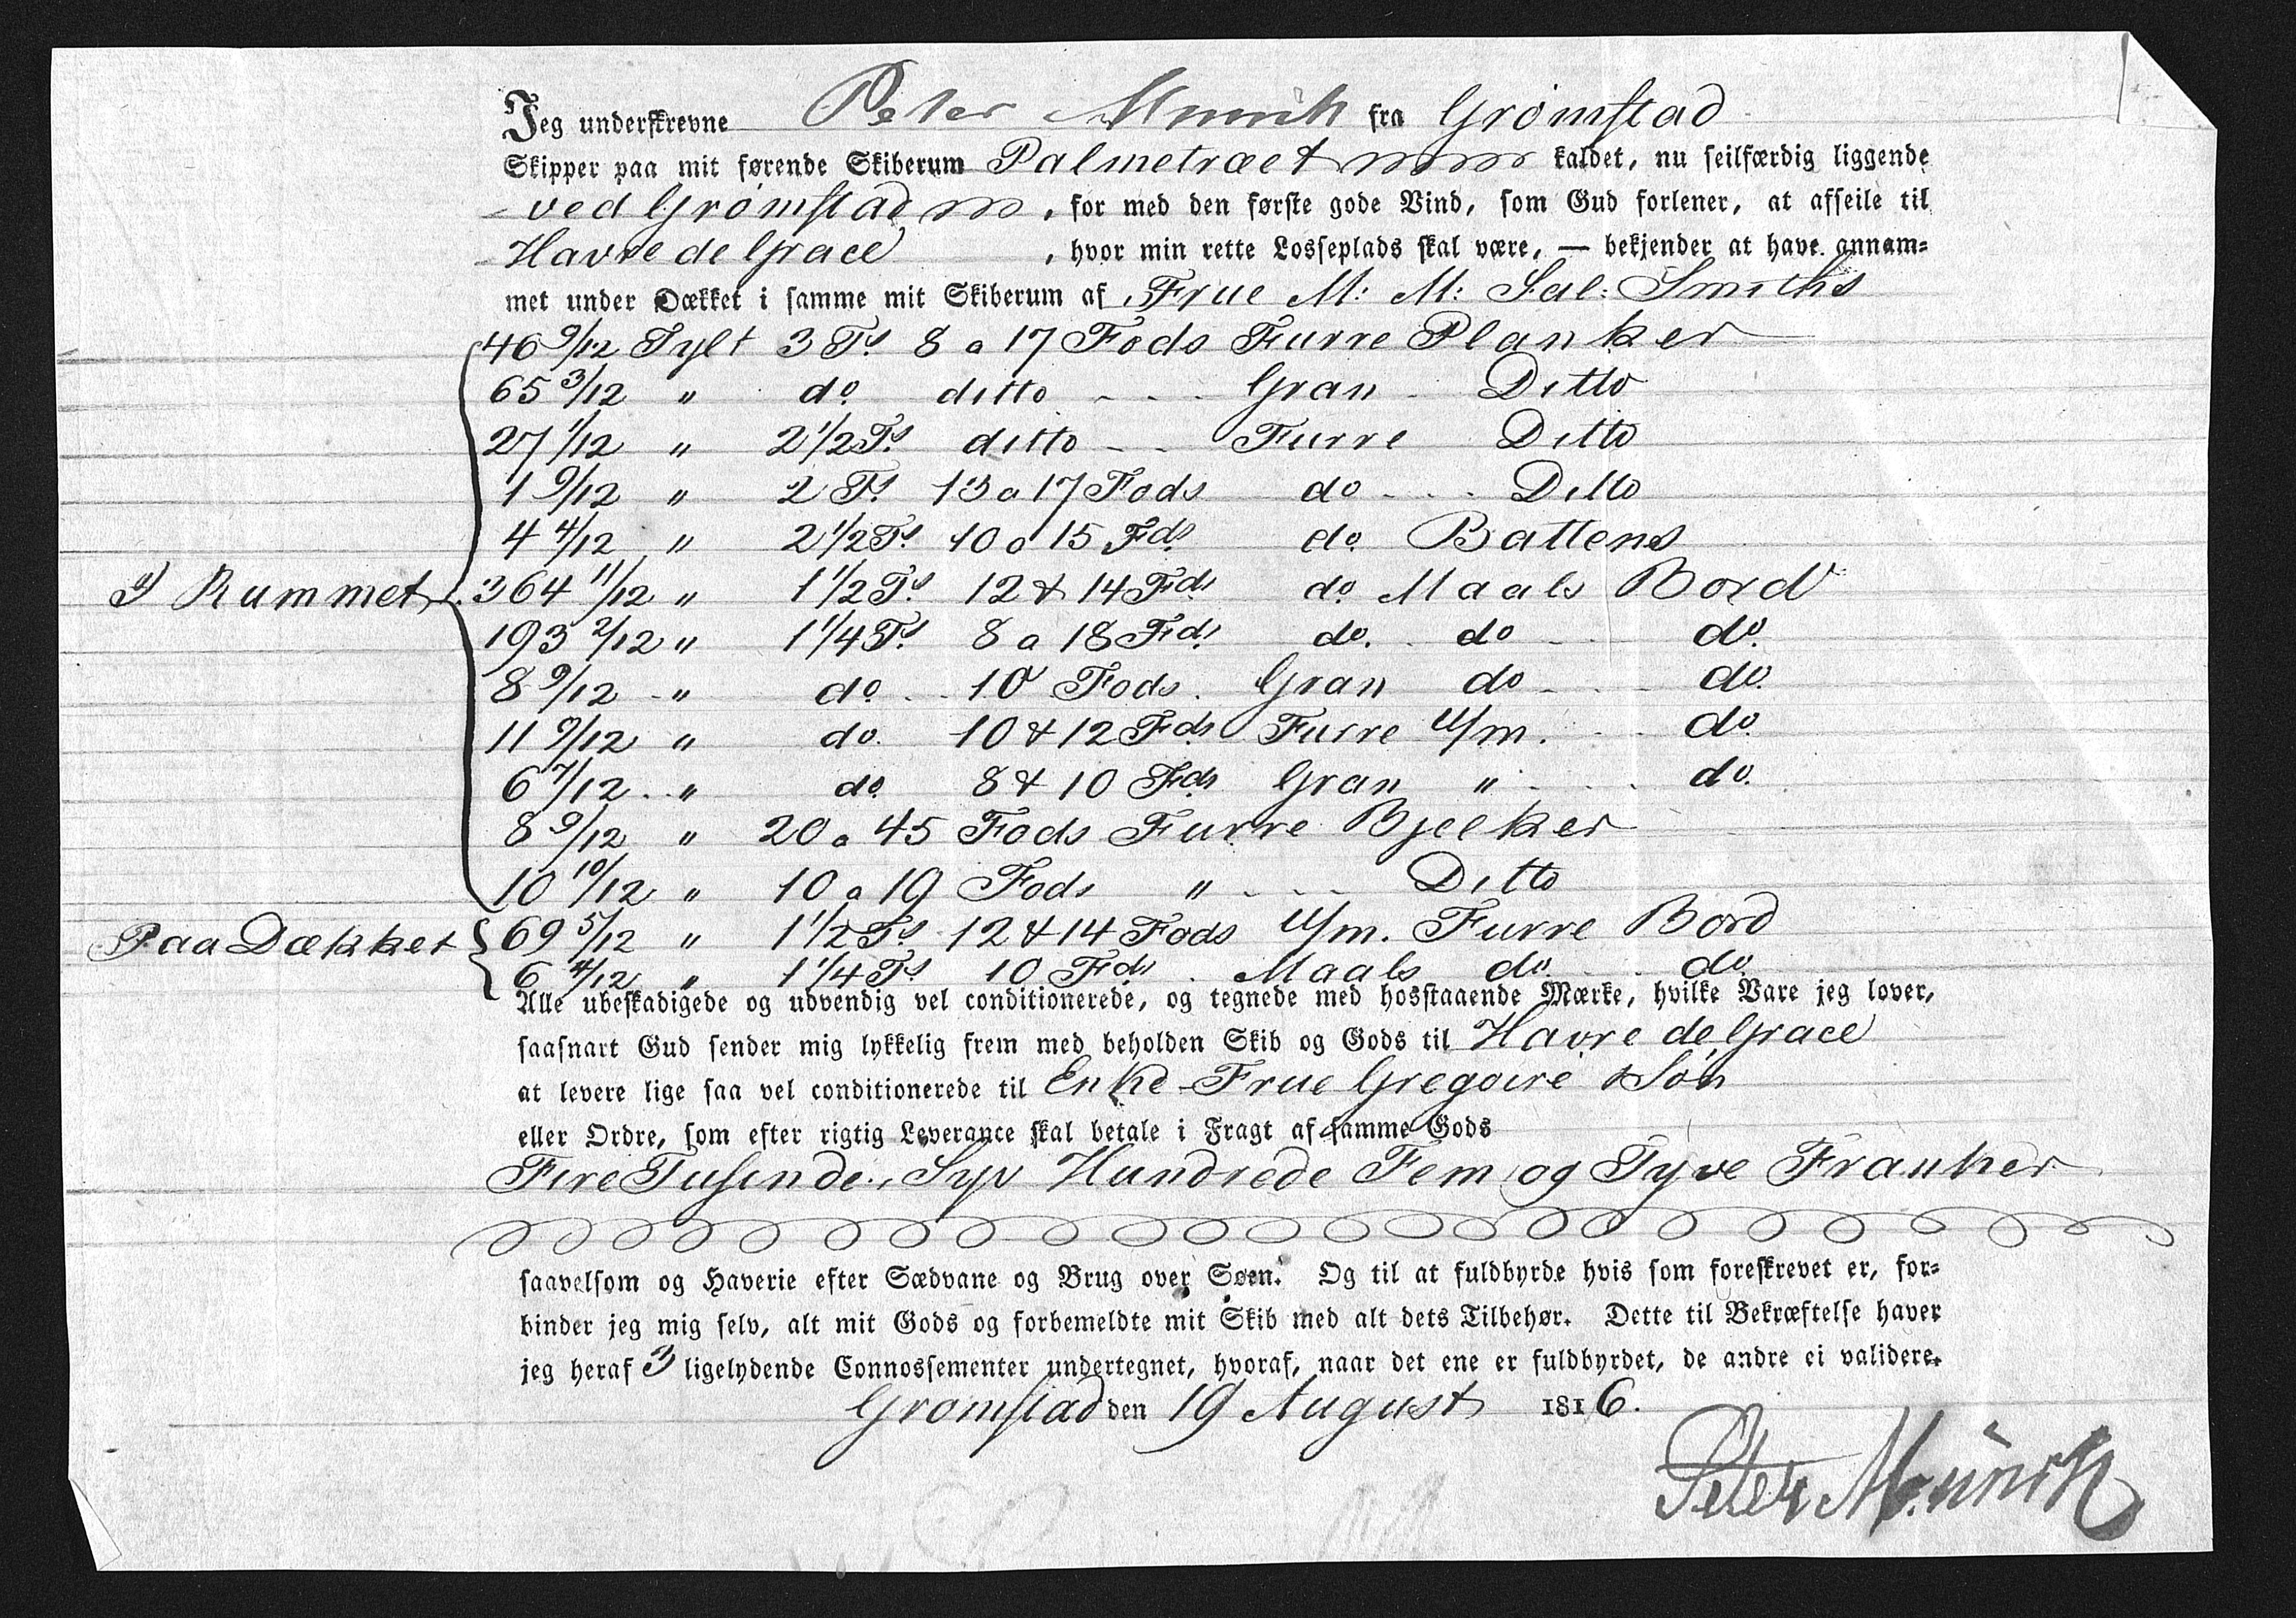 Jeg underskrevne Peter Münik fra Grømstad
Skipper paa mit førende Skiberum Palmetræet kaldet, nu seilfærdig liggende
ved Grømstad, for med den første gode Vind, som Gud forlener, at afseile til
Havre de Grace, hvor min rette Losseplads skal være, — bekjender at have annam-
met under Dækket i samme mit Skiberum af Frue M: M: Sal: Smiths
46 9/12 Tylt 3 Ts 8 a 17 Fods Furre Planker
65 3/12 " do ditto - - - Gran - Ditto
27 1/12 " 2 1/2 Ts ditto - - Furre Ditto
1 9/12 " 2 Ts 13 a 17 Fods do - - - Ditto
4 4/12 " 2 1/2 Ts 10 a 15 Fds do Battens
I Rummet 364 11/12 " 1 1/2 Ts 12 & 14 Fds do Maals Bord
193 2/12 " 1 1/4 Ts 8 a 18 Fds do. do - do.
8 9/12 - " do - - 10 Fods. Gran do - - - do.
11 9/12 " do. 10 & 12 Fds Furre U/m. - - do.
6 7/12 - " do 8 & 10 Fds Gran " - - - do.
8 9/12 " 20 a 45 Fods Furre Bjelker
10 10/12 " 10 a 19 Fods " - - - Ditto
Paa Dækket 69 5/12 " 1 1/2 Ts 12 & 14 Fods U/m. Furre Bord
6 4/12 " 1 1/4 Ts 10 Fds. Maals do - - do.
Alle ubeskadigede og udvendig vel conditionerede, og tegnede med hosstaaende Mærke, hvilke Vare jeg lover,
saasnart Gud sender mig lykkelig frem med beholden Skib og Gods til Havre de Grace
at levere lige saa vel conditionerede til Enke Frue Gregoire & Søn
eller Ordre, som efter rigtig Leverance skal betale i Fragt af samme Gods
Fire Tusinde, Syv Hundrede Fem og Tyve Franker
saavelsom og Haverie efter Sædvane og Brug over Søen. Og til at fuldbyrde hvis som foreskrevet er, for-
binder jeg mig selv, alt mit Gods og forbemeldte mit Skib med alt dets Tilbehør. Dette til Bekræftelse haver
jeg heraf 3 ligelydende Connossementer undertegnet, hvoraf, naar det ene er fuldbyrdet, de andre ei validere.
Grømstad den 19 August 1816.
Peter Münik